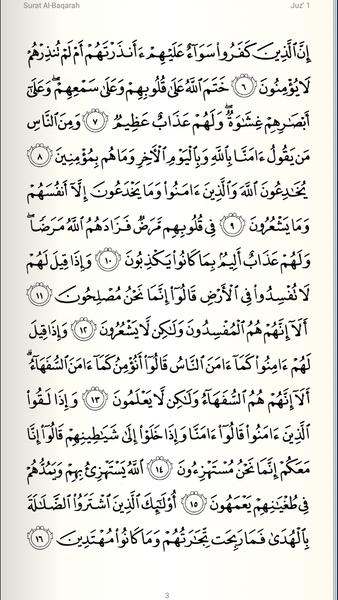 Surat Al-Baqarah Juz' 1
إِنَّ الَّذِينَ كَفَرُوا سَوَاءٌ عَلَيْهِمْ ءَأَنذَرْتَهُمْ أَمْ لَمْ تُنذِرْهُمْ
لَا يُؤْمِنُونَ ٦ خَتَمَ اللَّهُ عَلَىٰ قُلُوبِهِمْ وَعَلَىٰ سَمْعِهِمْ ۖ وَعَلَىٰ
أَبْصَارِهِمْ غِشَاوَةٌ ۖ وَلَهُمْ عَذَابٌ عَظِيمٌ ٧ وَمِنَ النَّاسِ
مَن يَقُولُ ءَامَنَّا بِاللَّهِ وَبِالْيَوْمِ الْآخِرِ وَمَا هُم بِمُؤْمِنِينَ ٨
يُخَادِعُونَ اللَّهَ وَالَّذِينَ ءَامَنُوا وَمَا يَخْدَعُونَ إِلَّا أَنفُسَهُمْ
وَمَا يَشْعُرُونَ ٩ فِي قُلُوبِهِم مَّرَضٌ فَزَادَهُمُ اللَّهُ مَرَضًا ۖ
وَلَهُمْ عَذَابٌ أَلِيمٌ بِمَا كَانُوا يَكْذِبُونَ ١٠ وَإِذَا قِيلَ لَهُمْ
لَا تُفْسِدُوا فِي الْأَرْضِ قَالُوا إِنَّمَا نَحْنُ مُصْلِحُونَ ١١
أَلَا إِنَّهُمْ هُمُ الْمُفْسِدُونَ وَلَٰكِن لَّا يَشْعُرُونَ ١٢ وَإِذَا قِيلَ
لَهُمْ ءَامِنُوا كَمَا ءَامَنَ النَّاسُ قَالُوا أَنُؤْمِنُ كَمَا ءَامَنَ السُّفَهَاءُ ۗ
أَلَا إِنَّهُمْ هُمُ السُّفَهَاءُ وَلَٰكِن لَّا يَعْلَمُونَ ١٣ وَإِذَا لَقُوا
الَّذِينَ ءَامَنُوا قَالُوا ءَامَنَّا وَإِذَا خَلَوْا إِلَىٰ شَيَاطِينِهِمْ قَالُوا إِنَّا
مَعَكُمْ إِنَّمَا نَحْنُ مُسْتَهْزِءُونَ ١٤ اللَّهُ يَسْتَهْزِئُ بِهِمْ وَيَمُدُّهُمْ
فِي طُغْيَانِهِمْ يَعْمَهُونَ ١٥ أُولَٰئِكَ الَّذِينَ اشْتَرَوُا الضَّلَالَةَ
بِالْهُدَىٰ فَمَا رَبِحَت تِّجَارَتُهُمْ وَمَا كَانُوا مُهْتَدِينَ ١٦
3